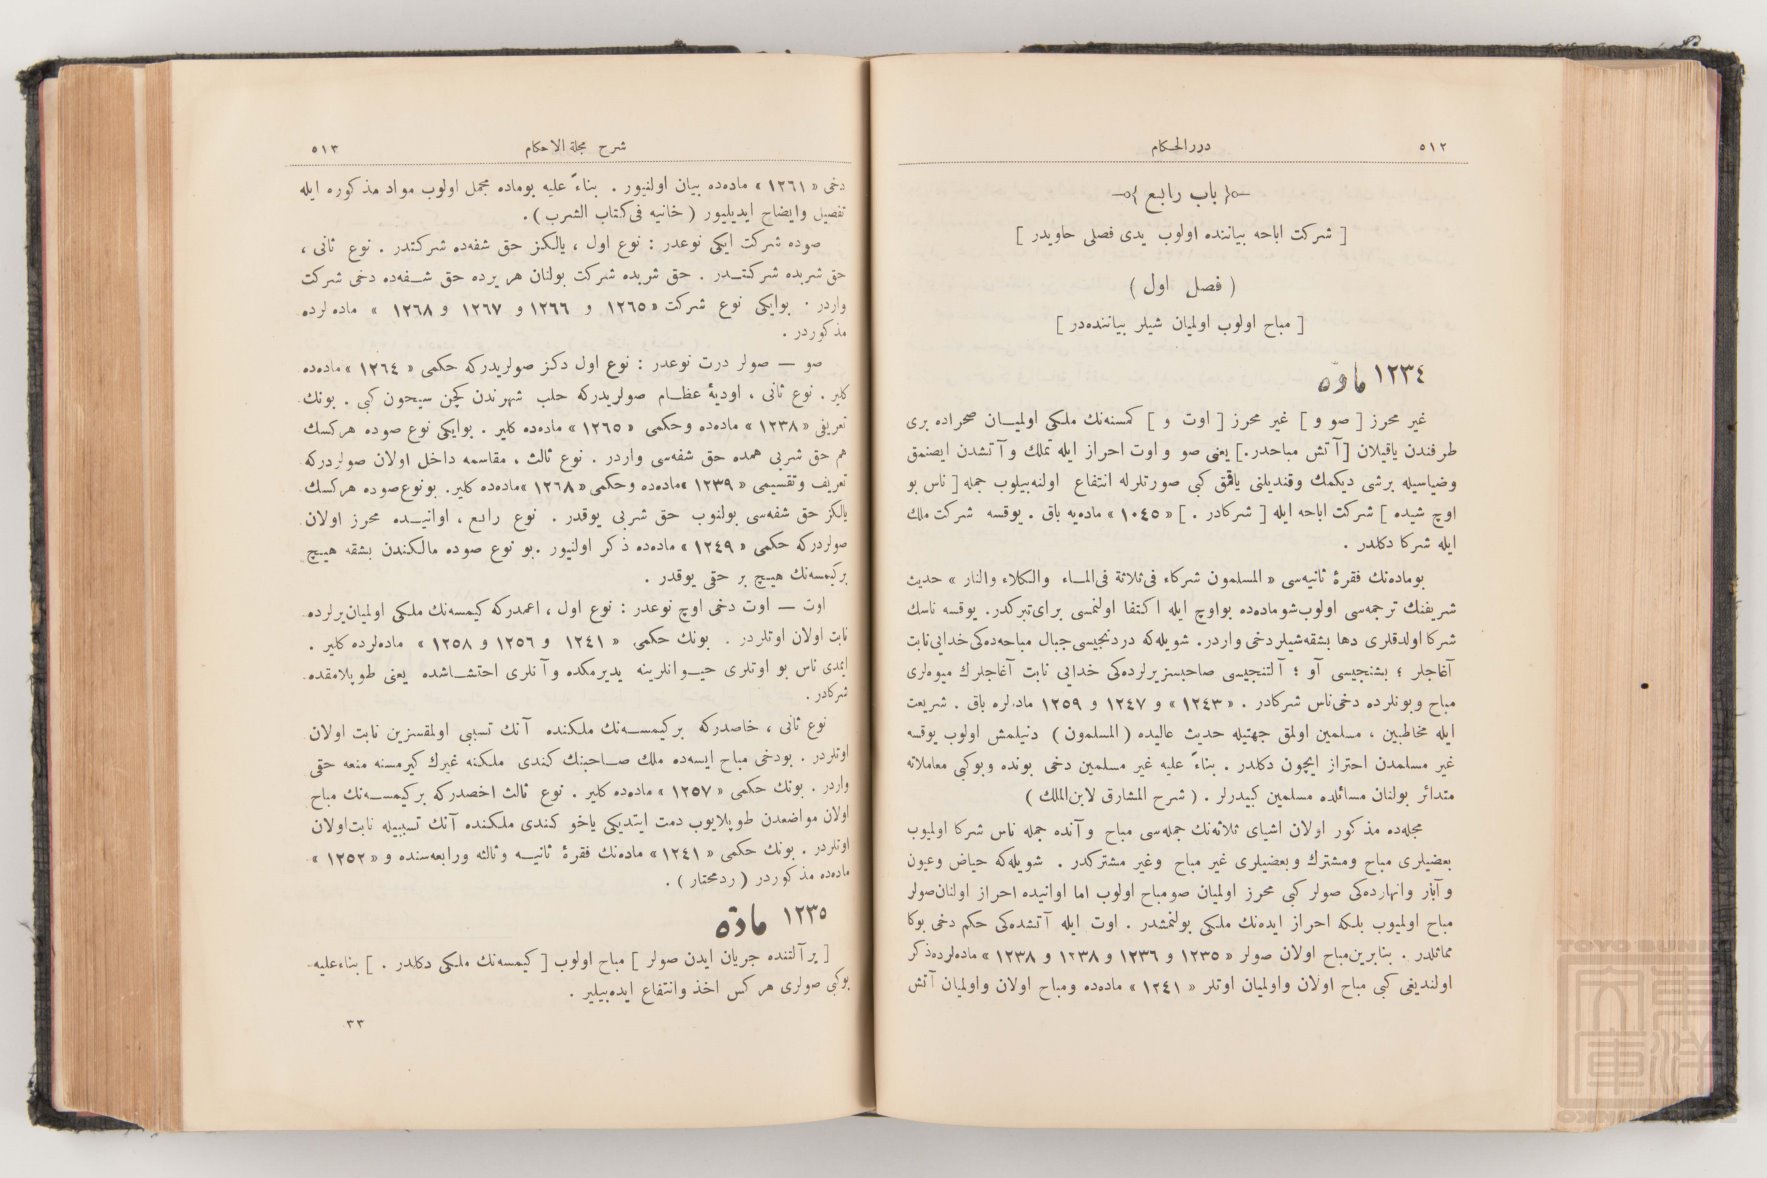 ٥١٢
دررالحكام
باب رابع
[ شركت اباحه بياننده اولوب يدى فصلى حاويدر ]
( فصل اول )
[ مباح اولوب اولميان شيلر بياننده‌در ]
١٢٣٤ ماده
غير محرز [ صو و ] غير محرز [ اوت و ] كمسنه‌نك ملكى اوليان صحراده برى
طرفندن ياقيلان [ آتش مباحدر. ] يعنى صو و اوت احراز ايله تملك و آتشدن ايصنمق
وضياسيله برشى ديكمك وقنديلنى ياقمق كبى صورتلرله انتفاع اولنه‌بيلوب جمله [ ناس بو
اوچ شيده ] شركت اباحه ايله [ شركادر . ] « ١٠٤٥ » ماده‌يه باق . يوقسه شركت ملك
ايله شركا دكلدر .
بوماده‌نك فقرهٔ ثانيه‌سى « المسلمون شركاء فى ثلاثة فى الماء والكلاء والنار » حديث
شريفنك ترجمه‌سى اولوب شوماده‌ده بواوچ ايله اكتفا اولنمسى براى تبركدر. يوقسه ناسك
شركا اولدقلرى دها بشقه شيلر دخى واردر. شويله‌كه دردنجيسى جبال مباحه‌ده‌كى خدايى نابت
آغاجلر ؛ بشنجيسى آو ؛ آلتنجيسى صاحبسز يرلرده‌كى خدايى نابت آغاجلرك ميوه‌لرى
مباح وبونلرده دخى ناس شركادر . « ١٢٤٣ » و ١٢٤٧ و ١٢٥٩ ماده‌لره باق . شريعت
ايله مخاطبين ، مسلمين اولمق جهتيله حديث عاليده ( المسلمون ) دنيلمش اولوب يوقسه
غير مسلمدن احتراز ايچون دكلدر . بناءً عليه غير مسلمين دخى بونده وبوكبى معاملاته
متدائر بولنان مسائلده مسلمين كبيدرلر . ( شرح المشارق لابن الملك )
مجله‌ده مذكور اولان اشياى ثلاثه‌نك جمله‌سى مباح و آنده جمله ناس شركا اوليوب
بعضيلرى مباح ومشترك وبعضيلرى غير مباح وغير مشتركدر . شويله‌كه حياض وعيون
و آبار وانهارده‌كى صولر كبى محرز اولميان صو مباح اولوب اما اوانيده احراز اولنان صولر
مباح اولميوب بلكه احراز ايده‌نك ملكى بولنمشدر . اوت ايله آتشده‌كى حكم دخى بوكا
مماثلدر . بنابرين مباح اولان صولر « ١٢٣٥ و ١٢٣٦ و ١٢٣٨ و ١٢٣٨ » ماده‌لرده ذكر
اولنديغى كبى مباح اولان واولميان اوتلر « ١٢٤١ » ماده‌ده ومباح اولان واولميان آتش
شرح مجلة الاحكام
٥١٣
دخى « ١٢٦١ » ماده‌ده بيان اولنيور . بناءً عليه بوماده مجمل اولوب مواد مذكوره ايله
تفصيل وايضاح ايديليور ( خانيه فى كتاب الشرب ) .
صوده شركت ايكى نوعدر : نوع اول ، يالكز حق شفه‌ده شركتدر . نوع ثانى ،
حق شربده شركتدر . حق شربده شركت بولنان هر يرده حق شفه‌ده دخى شركت
واردر . بوايكى نوع شركت « ١٢٦٥ و ١٢٦٦ و ١٢٦٧ و ١٢٦٨ » ماده‌لرده
مذكوردر .
صو — صولر درت نوعدر : نوع اول دكز صولريدركه حكمى « ١٢٦٤ » ماده‌ده
كلير . نوع ثانى ، اوديهٔ عظام صولريدركه حلب شهرندن كچن سيحون كبى . بونك
تعريفى « ١٢٣٨ » ماده‌ده وحكمى « ١٢٦٥ » ماده‌ده كلير . بوايكى نوع صوده هركسك
هم حق شربى همده حق شفه‌سى واردر . نوع ثالث ، مقاسمه داخل اولان صولردركه
تعريف وتقسيمى « ١٢٣٩ » ماده‌ده وحكمى « ١٢٦٨ » ماده‌ده كلير. بونوع صوده هركسك
يالكز حق شفه‌سى بولنوب حق شربى يوقدر . نوع رابع ، اوانيده محرز اولان
صولردركه حكمى « ١٢٤٩ » ماده‌ده ذكر اولنيور . بو نوع صوده مالكندن بشقه هيچ
بركيمسه‌نك هيچ بر حقى يوقدر .
اوت — اوت دخى اوچ نوعدر : نوع اول ، اعمدركه كيمسه‌نك ملكى اولميان يرلرده
نابت اولان اوتلردر . بونك حكمى « ١٢٤١ و ١٢٥٦ و ١٢٥٨ » ماده‌لرده كلير .
ايمدى ناس بو اوتلرى حيوانلرينه يديرمكده و آنلرى احتشاشده يعنى طوپلامقده
شركادر .
نوع ثانى ، خاصدركه بركيمسه‌نك ملكنده آنك تسببى اولمقسزين نابت اولان
اوتلردر . بودخى مباح ايسه‌ده ملك صاحبنك كندى ملكنه غيرك كيرمسنه منعه حقى
واردر . بونك حكمى « ١٢٥٧ » ماده‌ده كلير . نوع ثالث اخصدركه بركيمسه‌نك مباح
اولان مواضعدن طوپلايوب دمت ايتديكى ياخو كندى ملكنده آنك تسببيله نابت اولان
اوتلردر . بونك حكمى « ١٢٤١ » ماده‌نك فقرهٔ ثانيه وثالثه ورابعه‌سنده و « ١٢٥٢ »
ماده‌ده مذكوردر ( ردمحتار ) .
١٢٣٥ ماده
[ ير آلتنده جريان ايدن صولر ] مباح اولوب [ كيمسه‌نك ملكى دكلدر . ] بناءعليه
بوكبى صولرى هركس اخذ وانتفاع ايده‌بيلير .
٣٣
TOYO BUNKO
東洋文庫